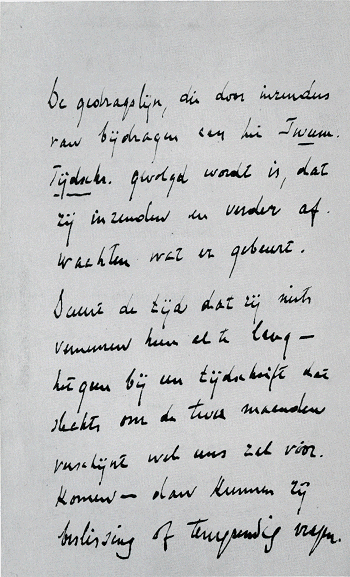 De gedragslijn, die door inzenders
van bijdragen aan het Tweem.
Tijdschr. gevolgd wordt is, dat
zij inzenden en verder af-
wachten wat er gebeurt.
Duurt de tijd dat zij niets
vernemen hun al te lang —
hetgeen bij een tijdschrift dat
slechts om de twee maanden
verschijnt wel eens zal vóor-
komen — dan kunnen zij
beslissing of terugzending vragen.